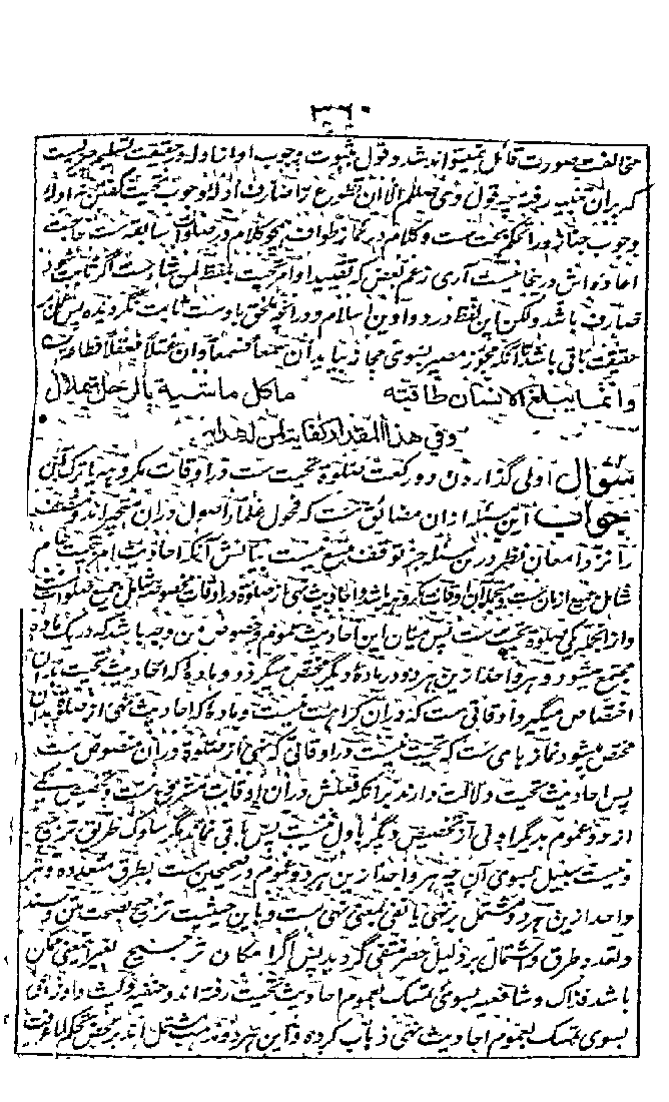 ٣٦٠
مخالفت بصورت قائل نمیتواند شد و قول بثبوت وجوب او از ادله در حقیقت تسلیم
که بران تقیید رفته چه قول وی صلعم الا ان تطوع از صارف ادلهٔ وجوب تحیت گفتن نه اولا
وجوب و کلام در نماز طواف همچو کلام در صلوات سابقه است حاجت
اعاده‌اش درینجا نیست آری زعم بعض که تقیید اوامر تحیت بلفظ لمن شاء است اگر ثابت شود
صارف باشد ولکن این لفظ در دواوین اسلام و در آنچه ملحق باوست ثابت نگردیده پس
حقیقت باقی باشد تا آنکه مجوز مصیر بسوی مجاز بیاید ان سمعا فسمعا وان عقلا فعقلا
وانما یبلغ الانسان طاقته ما کل ماشیة بالرحل شملال
وفی هذا المقدار کفایة لمن له هدایه
سوال اولی گذاردن دو رکعت صلوة تحیت ست در اوقات مکروهه یا ترک آن
جواب این مسئله ازان مضائق ست که فحول علماء اصول دران متحیر اند و منصف
را نزد امعان نظر درین مسئله جز توقف متسع نیست بیانش آنکه احادیث امر بتحیت عام
شامل جمیع ازمان ست و منجمله آن اوقات مکروهه باشد و احادیث نهی از صلوة در اوقات مخصوصه شامل جمیع صلوات ست
و از انجمله یکی صلوة تحیت ست پس میان این احادیث عموم و خصوص من وجه باشد که در یک ماده
مجتمع میشود و هر واحد ازین هر دو در مادهٔ دیگر مختص میگردد و مادهٔ که احادیث تحیت بدان
اختصاص میگیرد اوقاتی ست که دران کراهت نیست و مادهٔ که احادیث نهی از صلوة بدان
مختص میشود نمازهای ست که تحیت نیست در اوقاتی که نهی از صلوة دران منصوص ست
پس احادیث تحیت دلالت دارند برانکه فعلش دران اوقات ست و تخصیص یکی
از دو عموم بدیگر اولی از تخصیص دیگر باول نیست پس باقی نماند مگر سلوک طریق ترجیح
و نیست سبیل بسوی آن چه هر واحد ازین هر دو عموم در صحیحین ست بطرق متعدده و هر
واحد ازین هر دو مشتمل بر نهی یا نفی بمعنی نهی ست و باین حیثیت ترجیح بصحت متن و سند
و تعدد طرق و اشتمال بر دلیل حصر منتفی گردید پس اگر امکان ترجیح بغیر معنی ممکن
باشد فذاک و شافعیه بسوی تمسک بعموم احادیث تحیت رفته‌اند و حنفیه و لیث و اوزاعی
بسوی تمسک بعموم احادیث نهی ذهاب کرده و این هر دو مذهب مشتمل اند بر محض تحکم